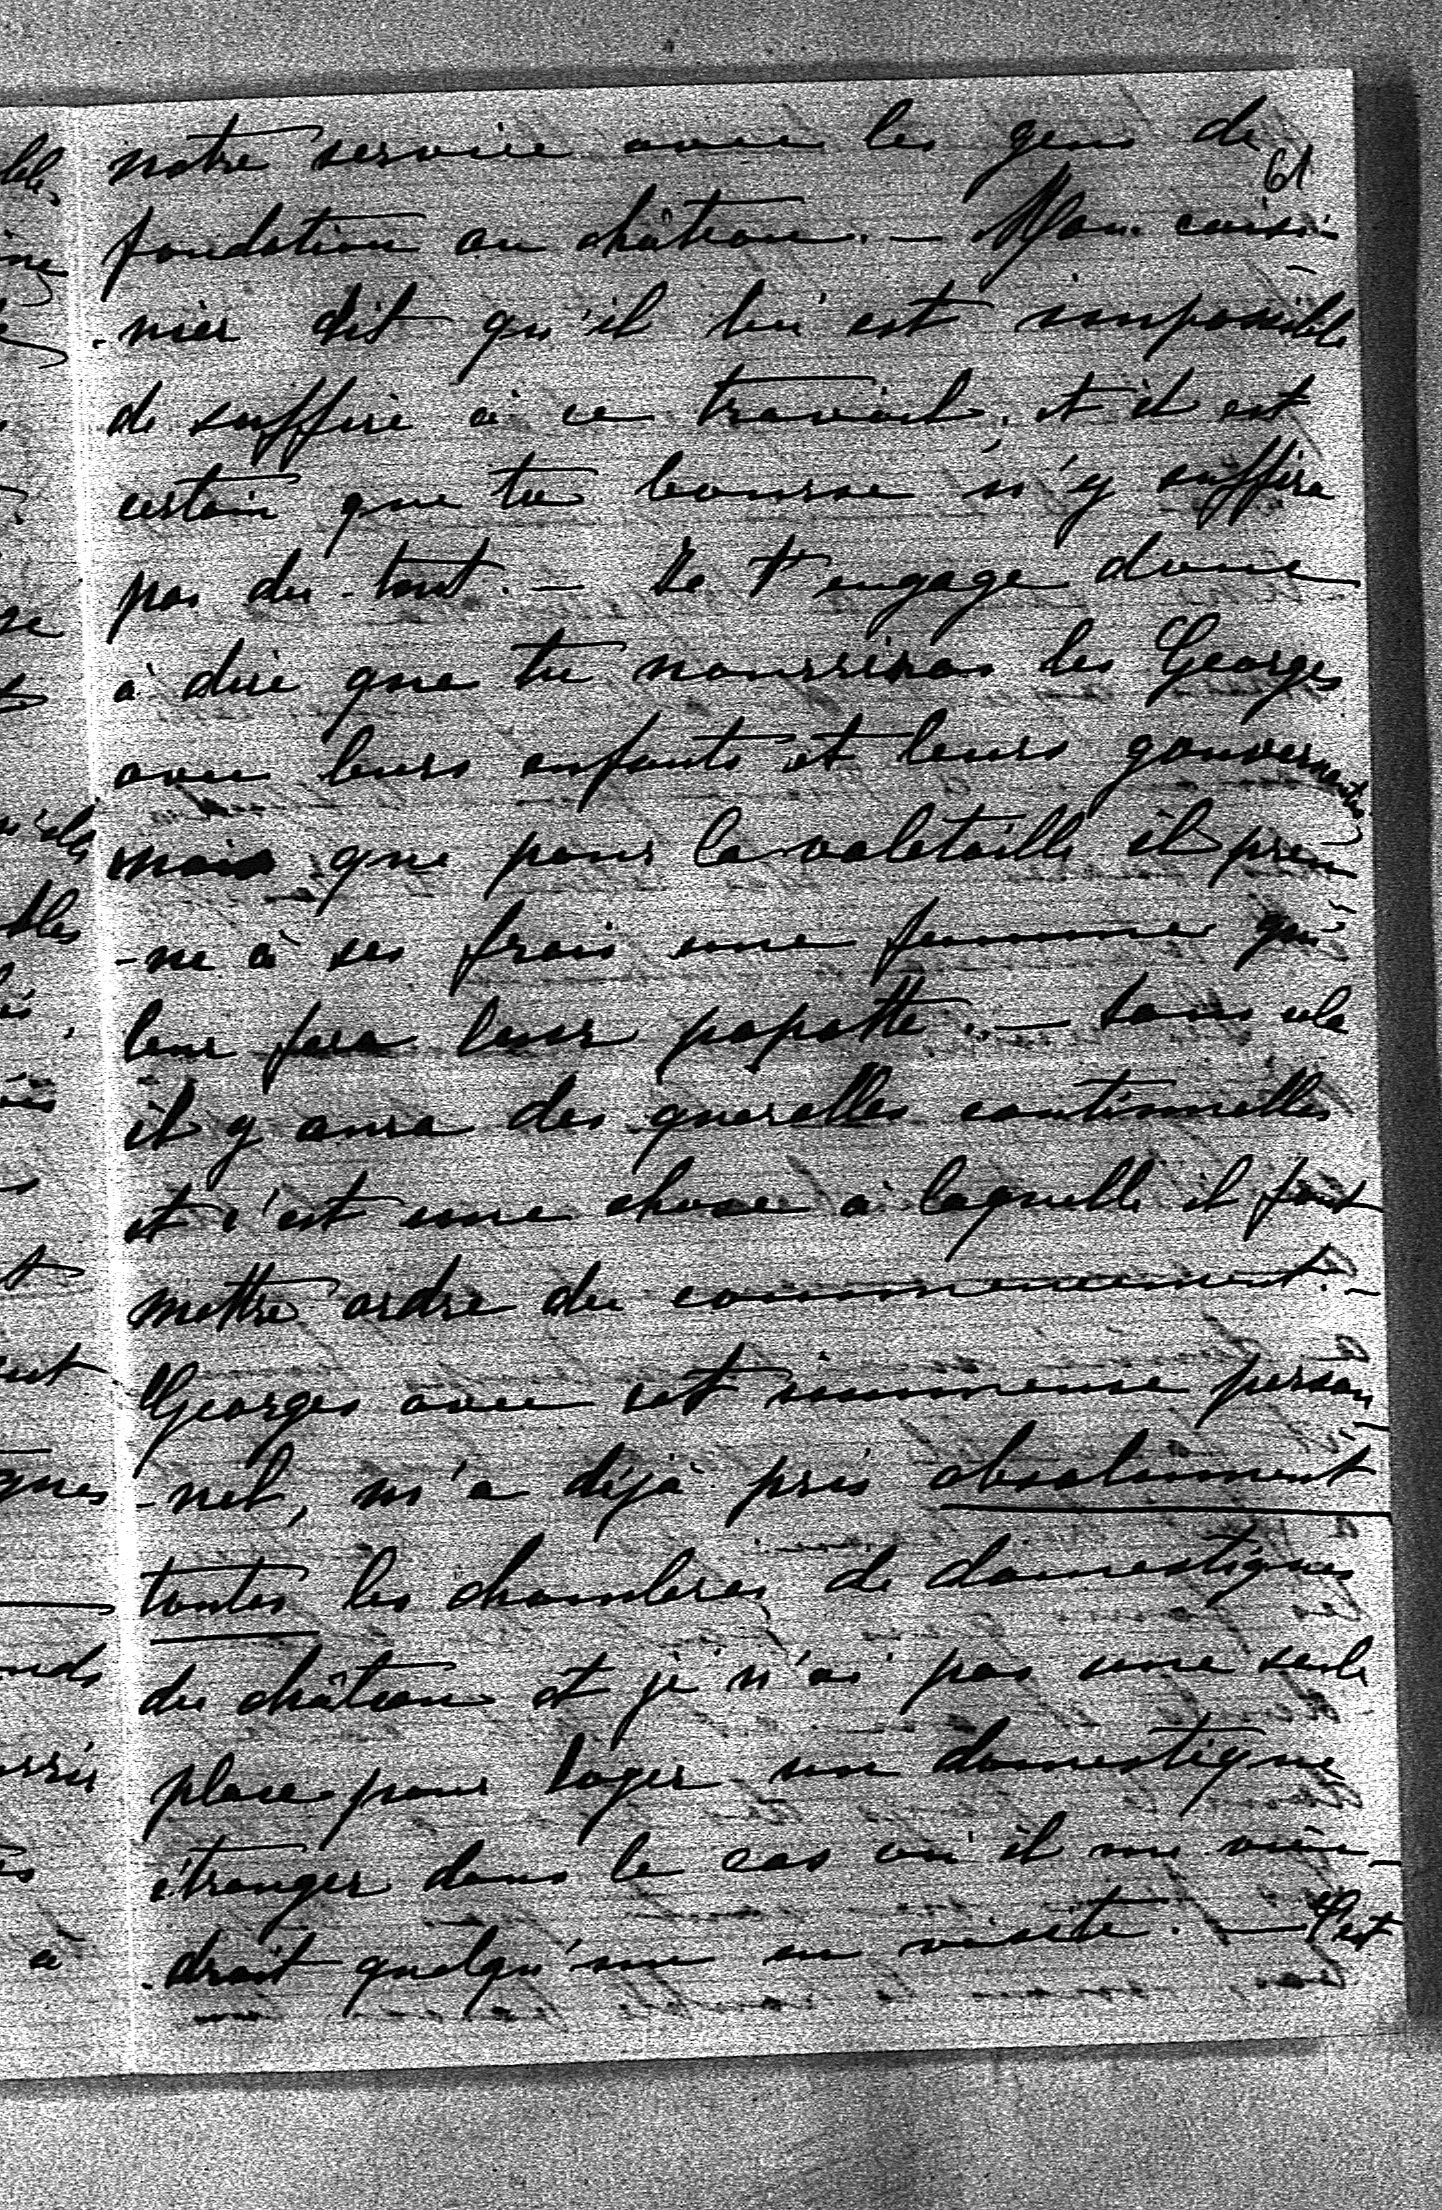 notre service avec les gens de
61
fondation au château. — Mon cuisi-
-nier dit qu'il lui est impossible
de suffire à ce travail, et il est
certain que ta bourse n'y suffira
pas du tout. — Je t'engage donc
à dire que tu nourriras les Georges
avec leurs enfants et leurs gouvernantes
mais que pour la valetaille il pren-
-ne à ses frais une femme qui
leur fera leur popotte. — Sans cela
il y aura des querelles continuelles
et c'est une chose à laquelle il faut
mettre ordre du commencement. —
Georges avec cet immense person-
-nel, m'a déjà pris absolument
toutes les chambres de domestiques
du château et je n'ai pas une seule
place pour loger un domestique
étranger dans le cas où il me vien-
-drait quelqu'un en visite. — C'est